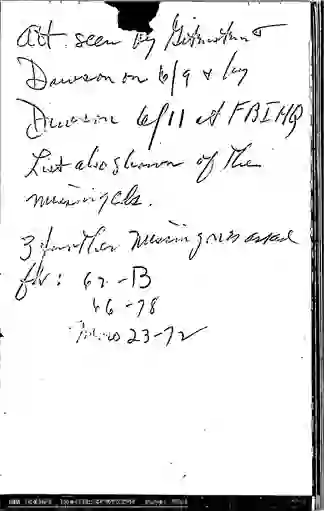 Att. seen by
Dawson on 6/9 & by
Dawson 6/11 at FBIHQ
List also shown of the
missing cls.
3 further missing ones asked
for: 62-B
66-78
Memo 23-72